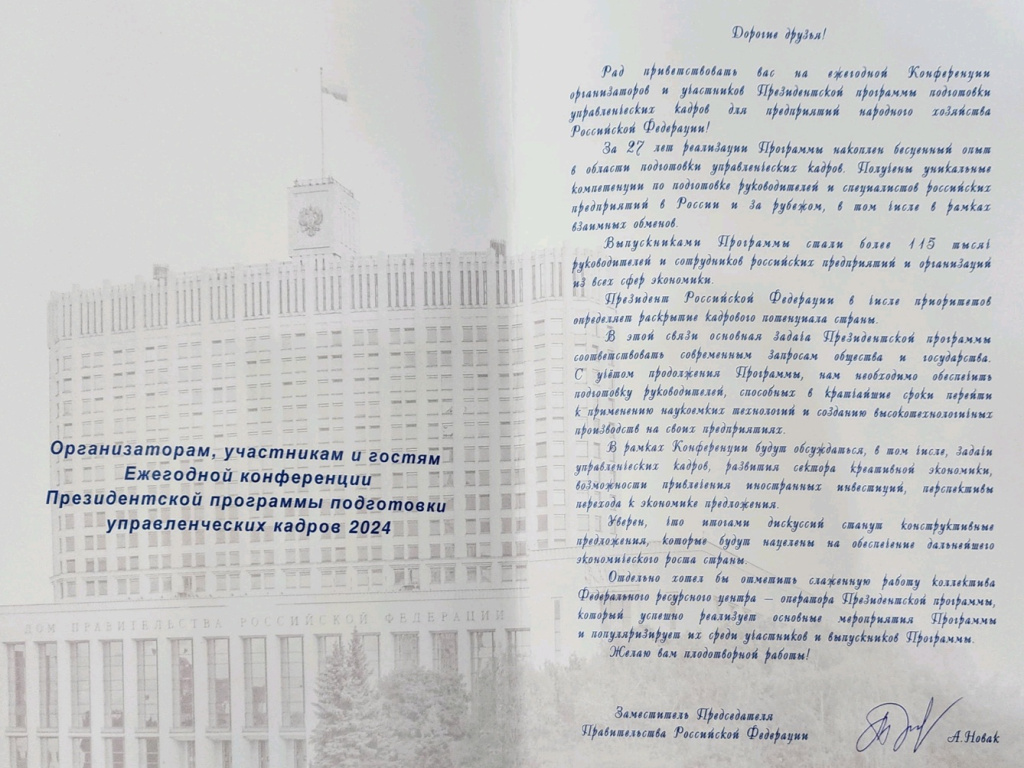 Организаторам, участникам и гостям
Ежегодной конференции
Президентской программы подготовки
управленческих кадров 2024
ДОМ ПРАВИТЕЛЬСТВА РОССИЙСКОЙ ФЕДЕРАЦИИ
Дорогие друзья!
Рад приветствовать вас на ежегодной Конференции
организаторов и участников Президентской программы подготовки
управленческих кадров для предприятий народного хозяйства
Российской Федерации!
За 27 лет реализации Программы накоплен бесценный опыт
в области подготовки управленческих кадров. Получены уникальные
компетенции по подготовке руководителей и специалистов российских
предприятий в России и за рубежом, в том числе в рамках
взаимных обменов.
Выпускниками Программы стали более 115 тысяч
руководителей и сотрудников российских предприятий и организаций
из всех сфер экономики.
Президент Российской Федерации в числе приоритетов
определяет раскрытие кадрового потенциала страны.
В этой связи основная задача Президентской программы
соответствовать современным запросам общества и государства.
С учётом продолжения Программы, нам необходимо обеспечить
подготовку руководителей, способных в кратчайшие сроки перейти
к применению наукоемких технологий и созданию высокотехнологичных
производств на своих предприятиях.
В рамках Конференции будут обсуждаться, в том числе, задачи
управленческих кадров, развития сектора креативной экономики,
возможности привлечения иностранных инвестиций, перспективы
перехода к экономике предложения.
Уверен, что итогами дискуссий станут конструктивные
предложения, которые будут нацелены на обеспечение дальнейшего
экономического роста страны.
Отдельно хотел бы отметить слаженную работу коллектива
Федерального ресурсного центра – оператора Президентской программы,
который успешно реализует основные мероприятия Программы
и популяризирует их среди участников и выпускников Программы.
Желаю вам плодотворной работы!
Заместитель Председателя
Правительства Российской Федерации
А.Новак